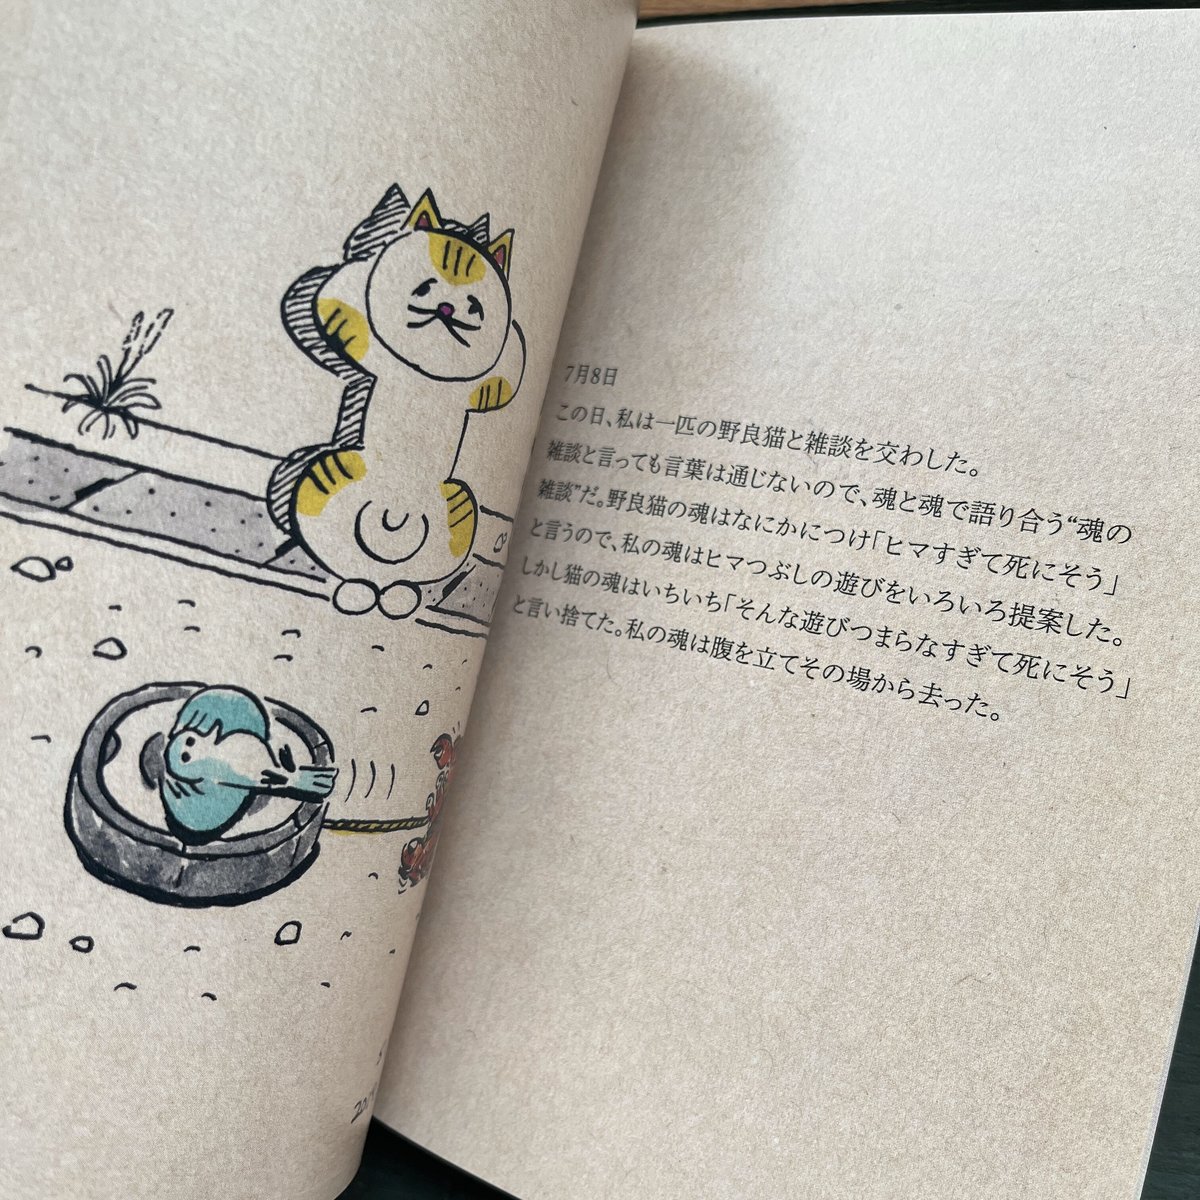 7月8日
この日、私は一匹の野良猫と雑談を交わした。
雑談と言っても言葉は通じないので、魂と魂で語り合う“魂の
雑談”だ。野良猫の魂はなにかにつけ「ヒマすぎて死にそう」
と言うので、私の魂はヒマつぶしの遊びをいろいろ提案した。
しかし猫の魂はいちいち「そんな遊びつまらなすぎて死にそう」
と言い捨てた。私の魂は腹を立てその場から去った。